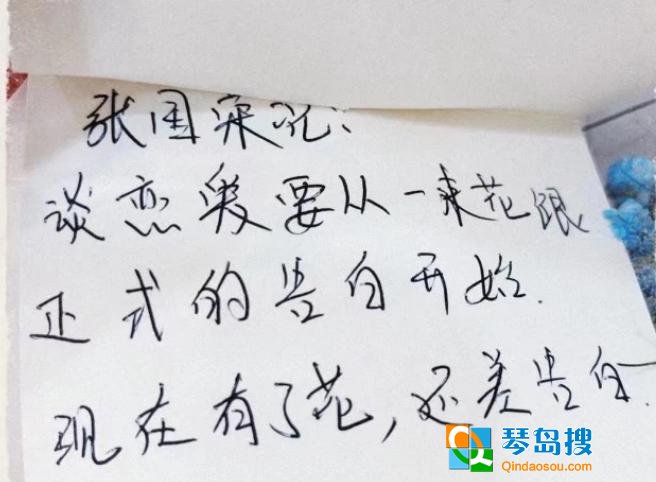 张国荣说：
谈恋爱要从一束花跟
正式的告白开始.
现在有了花，还差告白.
琴岛搜
Qindaosou.com